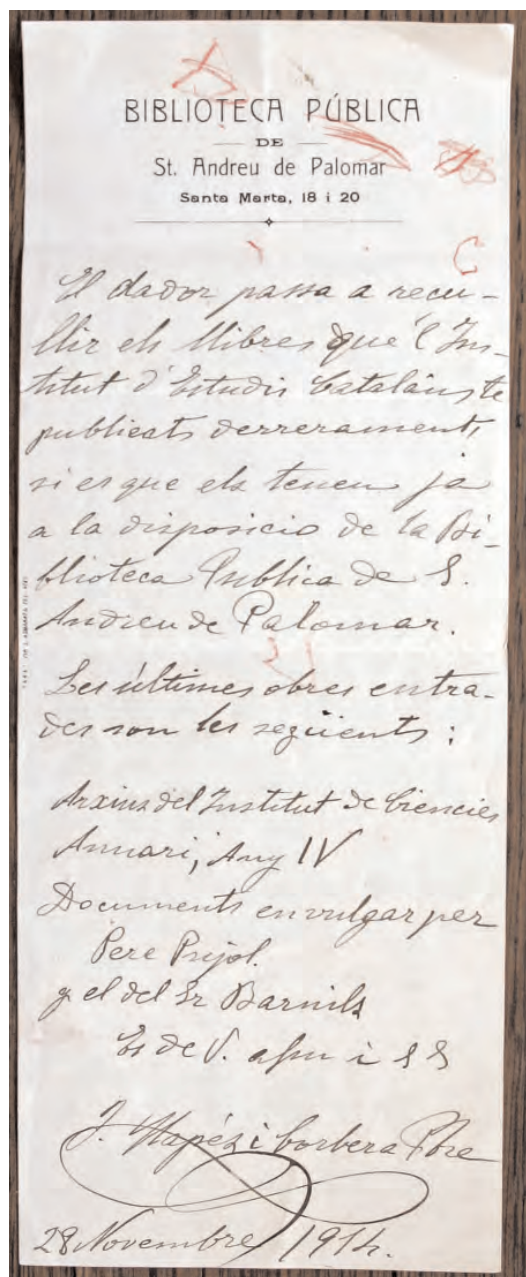 BIBLIOTECA PÚBLICA
DE
St. Andreu de Palomar
Santa Marta, 18 i 20
El dador passa a recu-
llir els llibres que l'Ins-
titut d'Estudis Catalans te
publicats derrerament,
si es que els teneu ja
a la disposicio de la Bi-
blioteca Publica de S.
Andreu de Palomar.
Les últimes obres entra-
des son les següents:
Arxius del Institut de Ciencies
Annari, Any IV
Documents en vulgar per
Pere Pujol.
y el del Sr Barnils
Es de V. afm i S S
J. Clapés i Corbera Pbre
28 Novembre 1914.